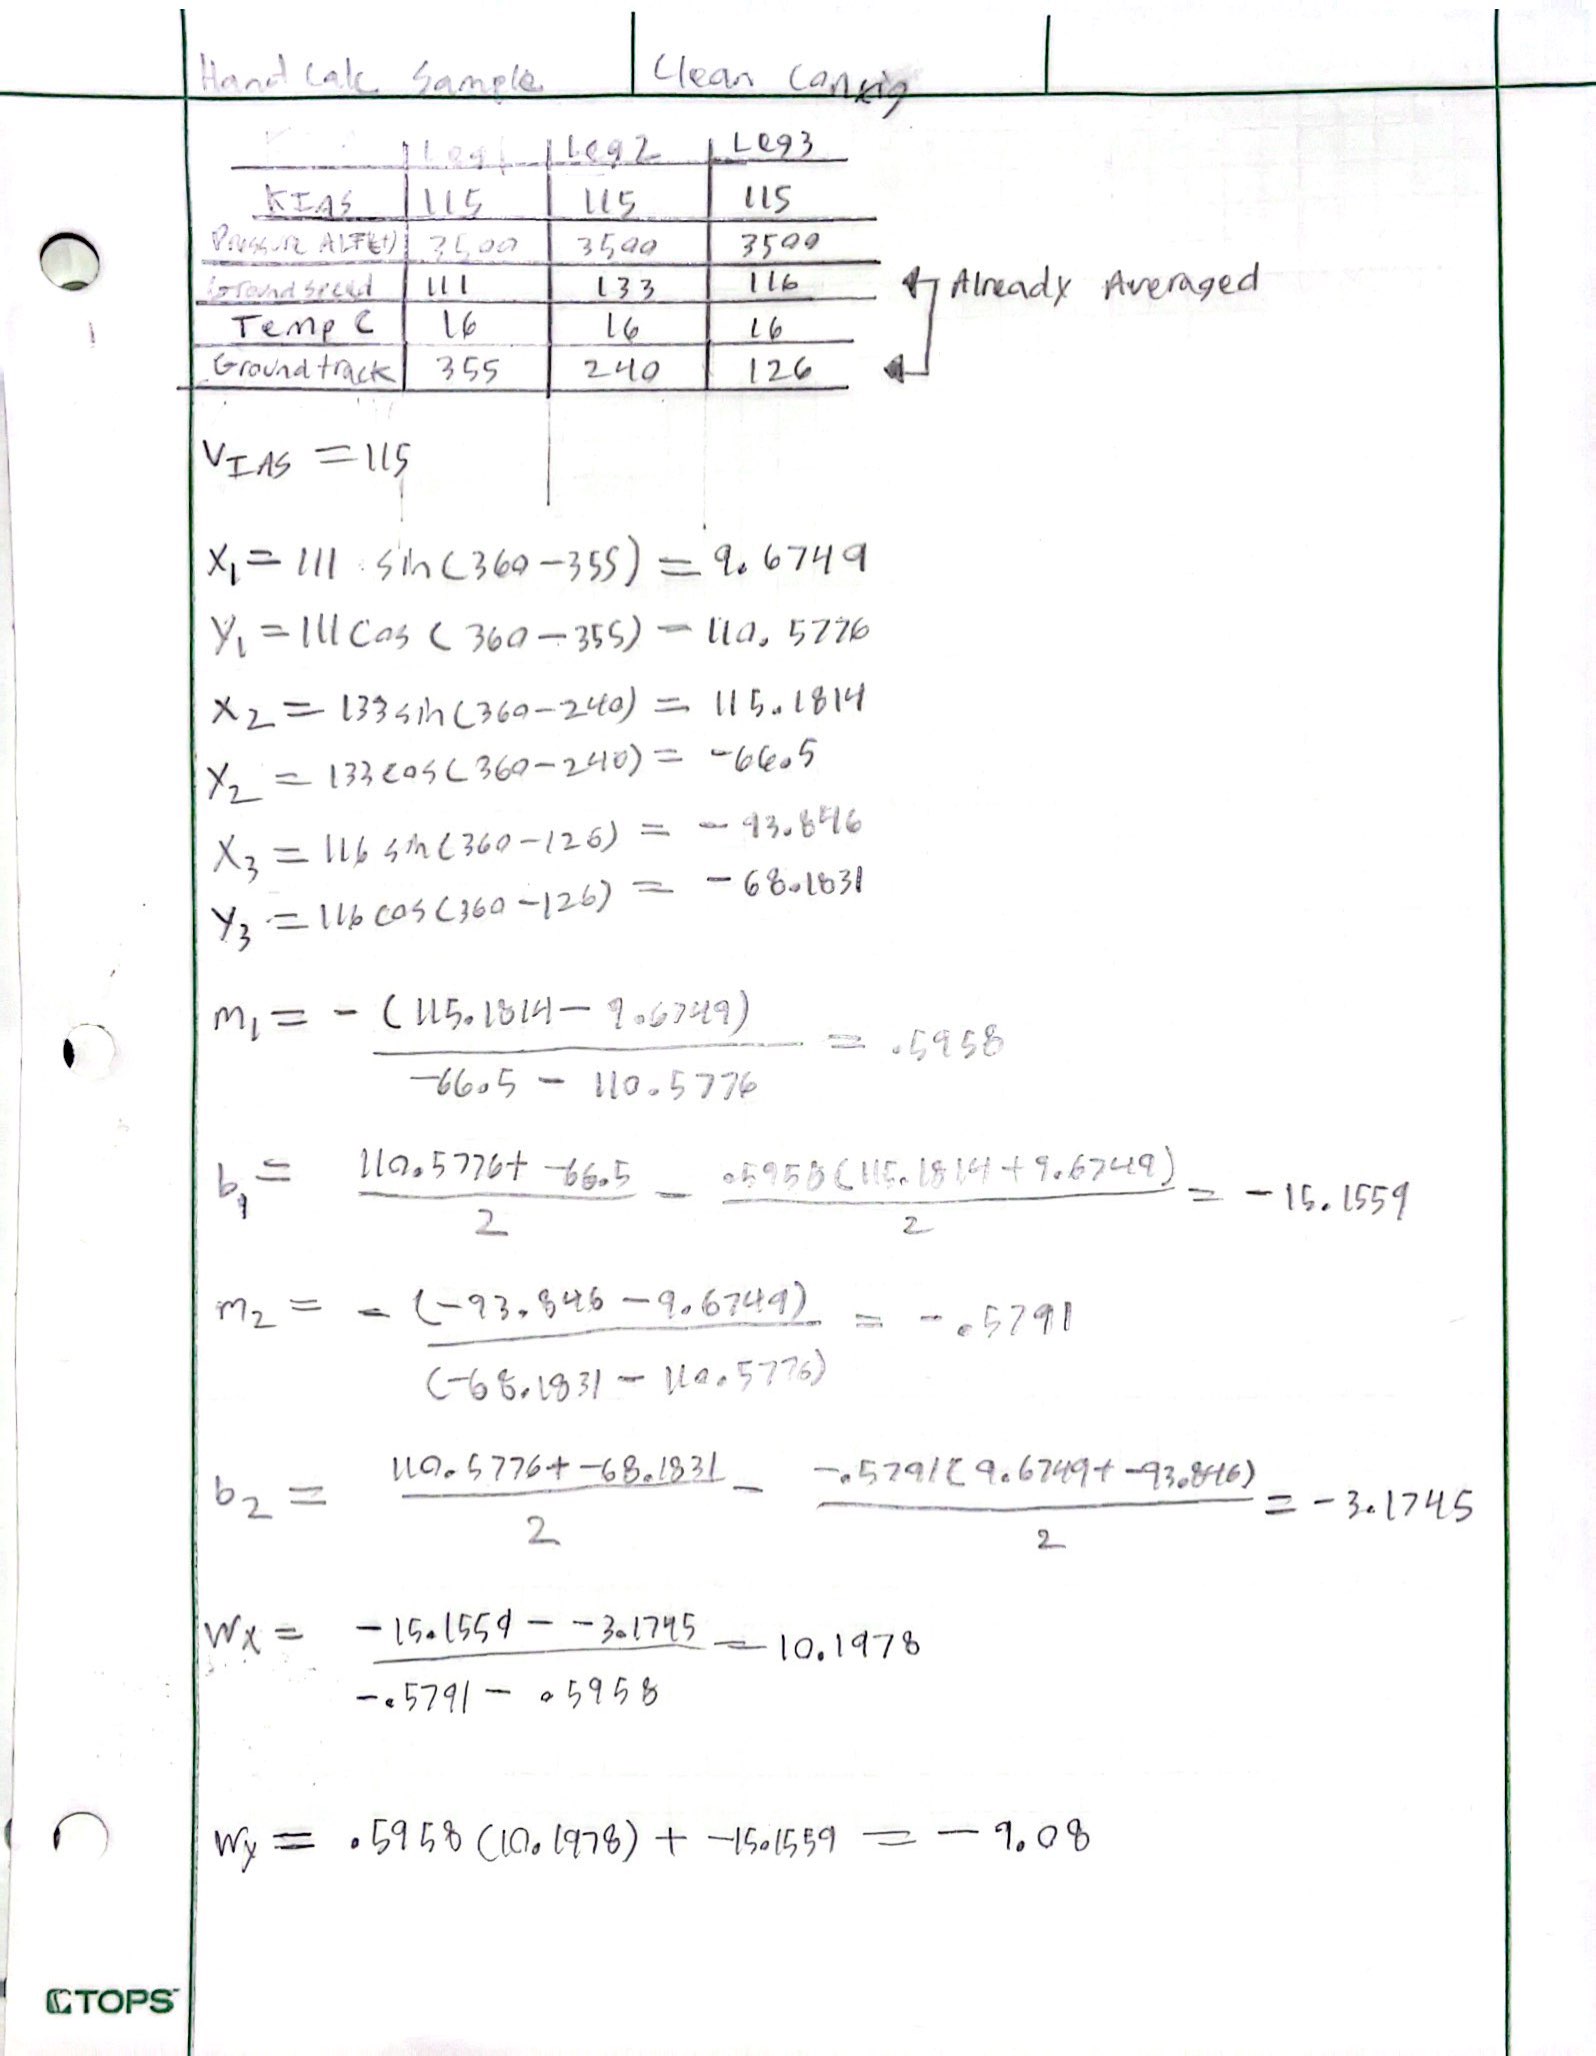 Hand Calc Sample Clean Config
Leg 1 Leg 2 Leg 3
KIAS 115 115 115
Pressure ALT(ft) 3500 3500 3500
Ground speed 111 133 116 Already Averaged
Temp C 16 16 16
Ground track 355 240 126
V_IAS = 115
X₁ = 111 sin(360-355) = 9.6749
Y₁ = 111 cos(360-355) = 110.5776
X₂ = 133 sin(360-240) = 115.1814
Y₂ = 133 cos(360-240) = -66.5
X₃ = 116 sin(360-126) = -93.846
Y₃ = 116 cos(360-126) = -68.1831
m₁ = - (115.1814 - 9.6749) / -66.5 - 110.5776 = .5958
b₁ = 110.5776 + -66.5 / 2 - .5958(115.1814 + 9.6749) / 2 = -15.1559
m₂ = - (-93.846 - 9.6749) / (-68.1831 - 110.5776) = -.5791
b₂ = 110.5776 + -68.1831 / 2 - -.5791(9.6749 + -93.846) / 2 = -3.1745
Wx = -15.1559 - -3.1745 / -.5791 - .5958 = 10.1978
Wy = .5958(10.1978) + -15.1559 = -9.08
TOPS